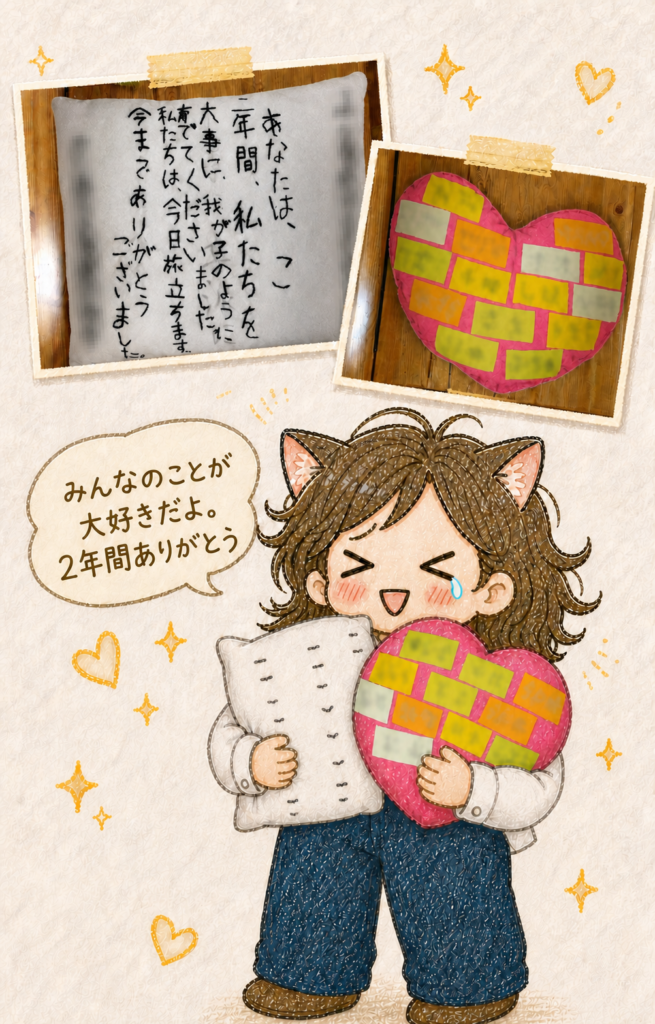 あなたは、こ
二年間、私たちを
大事に、我が子のように
育ててくださいました
私たちは、今日旅立ちます
今までありがとう
ございました。
みんなのことが
大好きだよ。
2年間ありがとう